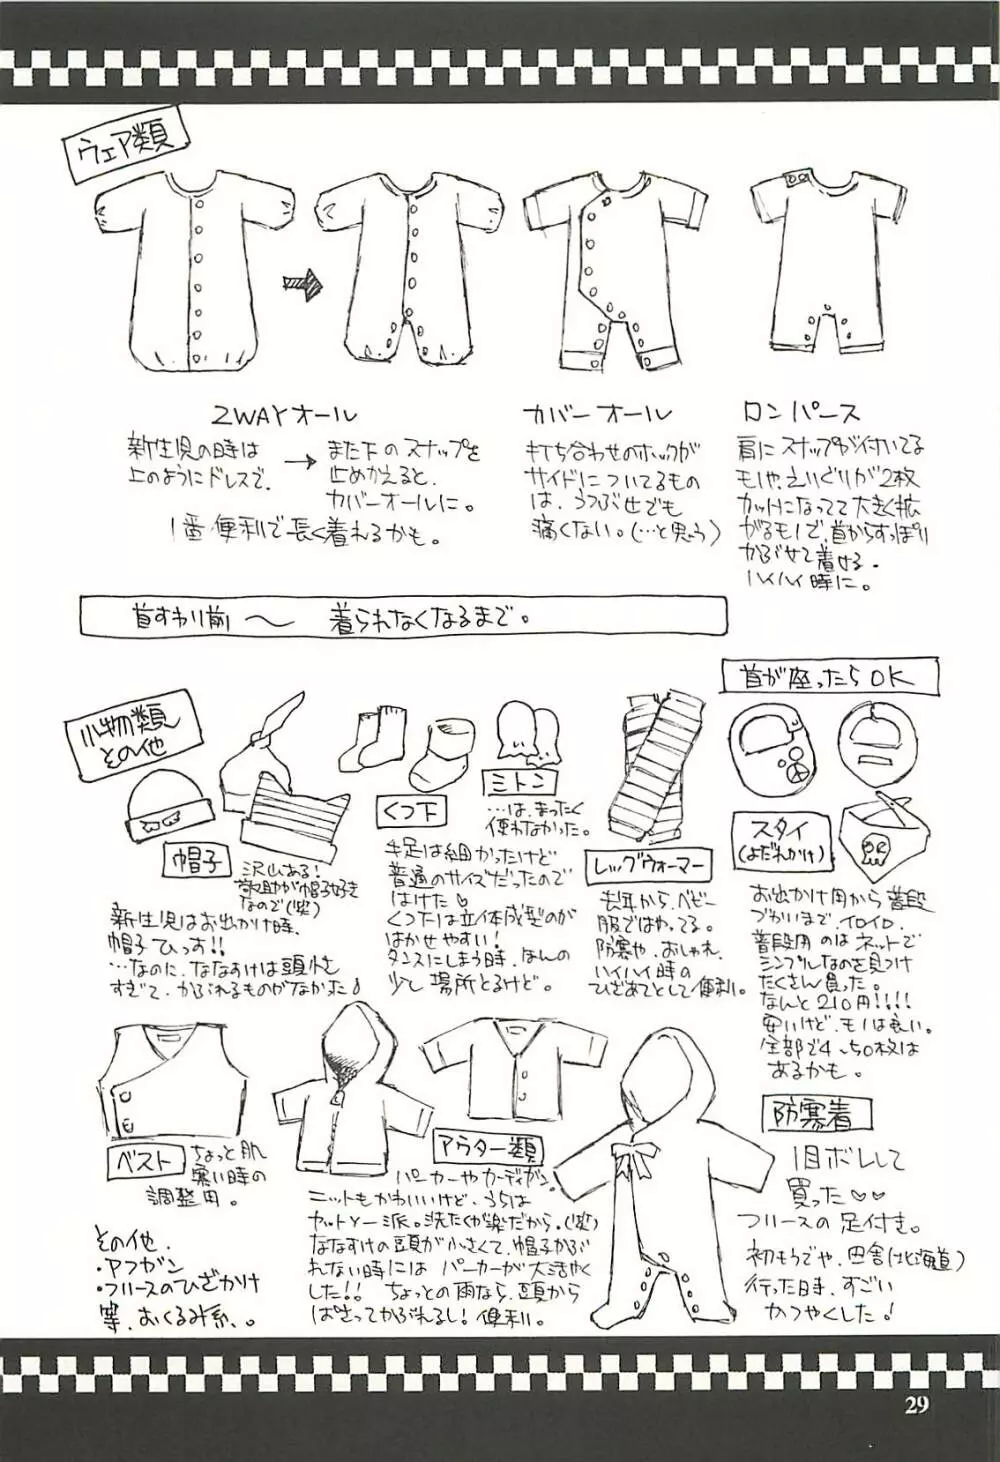 ウェア類
2WAYオール
新生児の時は
上のようにドレスで、
→
また下のスナップを
止めかえると、
カバーオールに。
1番便利で長く着れるかも。
カバーオール
打ち合わせのホックが
サイドについてるもの
は、うつぶせでも
痛くない。(…と思う)
ロンパース
肩にスナップが付いてる
モノや、えりぐりが2枚
カットになってて大きく拡
がるモノで、首からすっぽり
かぶせて着せる。
ハイハイ時に。
首すわり前 〜 着られなくなるまで。
首が座ったらOK
小物類
その他
帽子
沢山ある!
が帽子好き
なので(笑)
新生児はお出かけ時、
帽子ひっす!!
…なのに、ななすけは頭小さ
すぎて、かぶれるものがなかった♪
くつ下
手足は細かったけど
普通のサイズだったので
はけた♡
くつ下は立体成型のが
はかせやすい!
タンスにしまう時、ほんの
少し場所とるけど。
ミトン
…は、まったく
使わなかった。
レッグウォーマー
去年から、ベビー
服ではやってる。
防寒や、おしゃれ、
ハイハイ時の
ひざあてとして便利。
スタイ
(よだれかけ)
お出かけ用から普段
づかいまで、イロイロ。
普段用のはネットで
シンプルなのを見つけ
たくさん買った。
なんと210円!!!!
安いけど、モノは良い。
全部で4、50枚は
あるかも。
ベスト
ちょっと肌
寒い時の
調整用。
アウター類
パーカーやカーディガン。
ニットもかわいいけど、うちは
カットソー派。洗たくが楽だから。(笑)
ななすけの頭が小さくて、帽子かぶ
れない時には パーカーが大活やく
した!! ちょっとの雨なら、頭から
ばさってかぶれるし! 便利。
防寒着
1目ボレして
買った♡♡
フリースの足付き。
初もうでや、田舎(北海道)
行った時、すごい
かつやくした!
その他、
・アフガン
・フリースのひざかけ
等、おくるみ系。
29